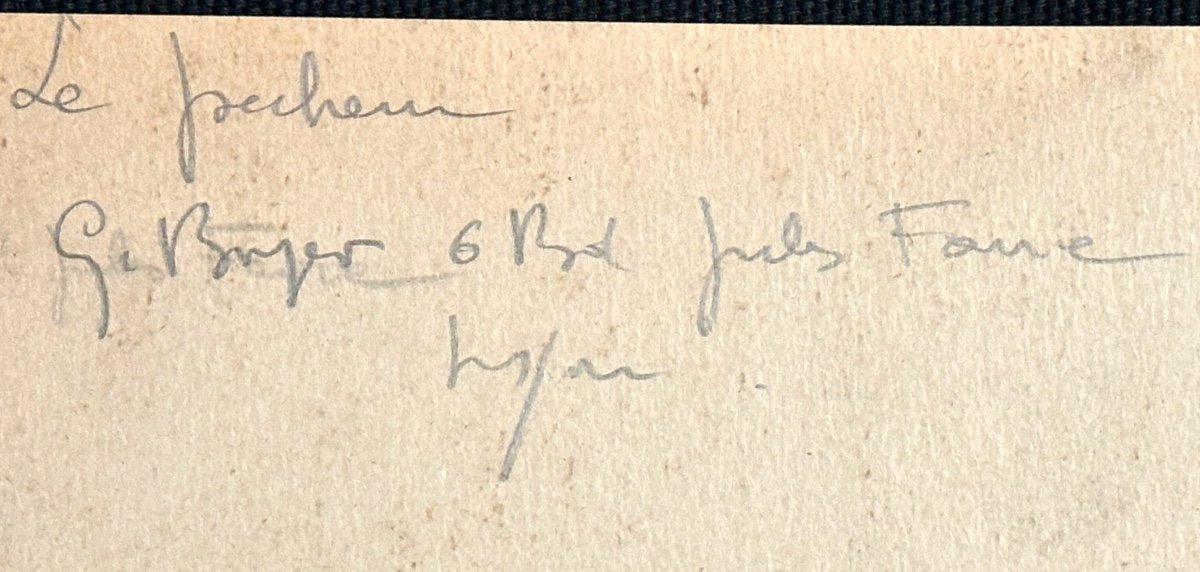 Le pecheur
G. Boyer 6 Bd Jules Favre
Lyon.